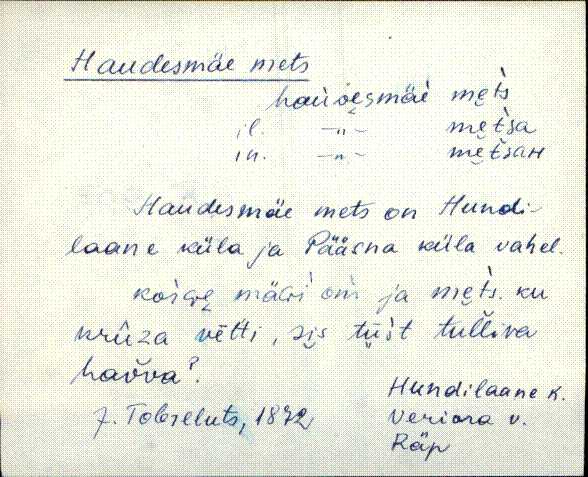 Haudesmäe mets
hauvesmäe mets
il. -"- metsa
in. -"- mẹtsan
Haudesmäe mets on Hundi-
laane küla ja Pääsna küla vahel.
mägi om ja mets. ku
kruza vetti, sis tüst tulliva
havva?
J. Tobreluts, 1872
Hundilaane k.
Veriora v.
Räp